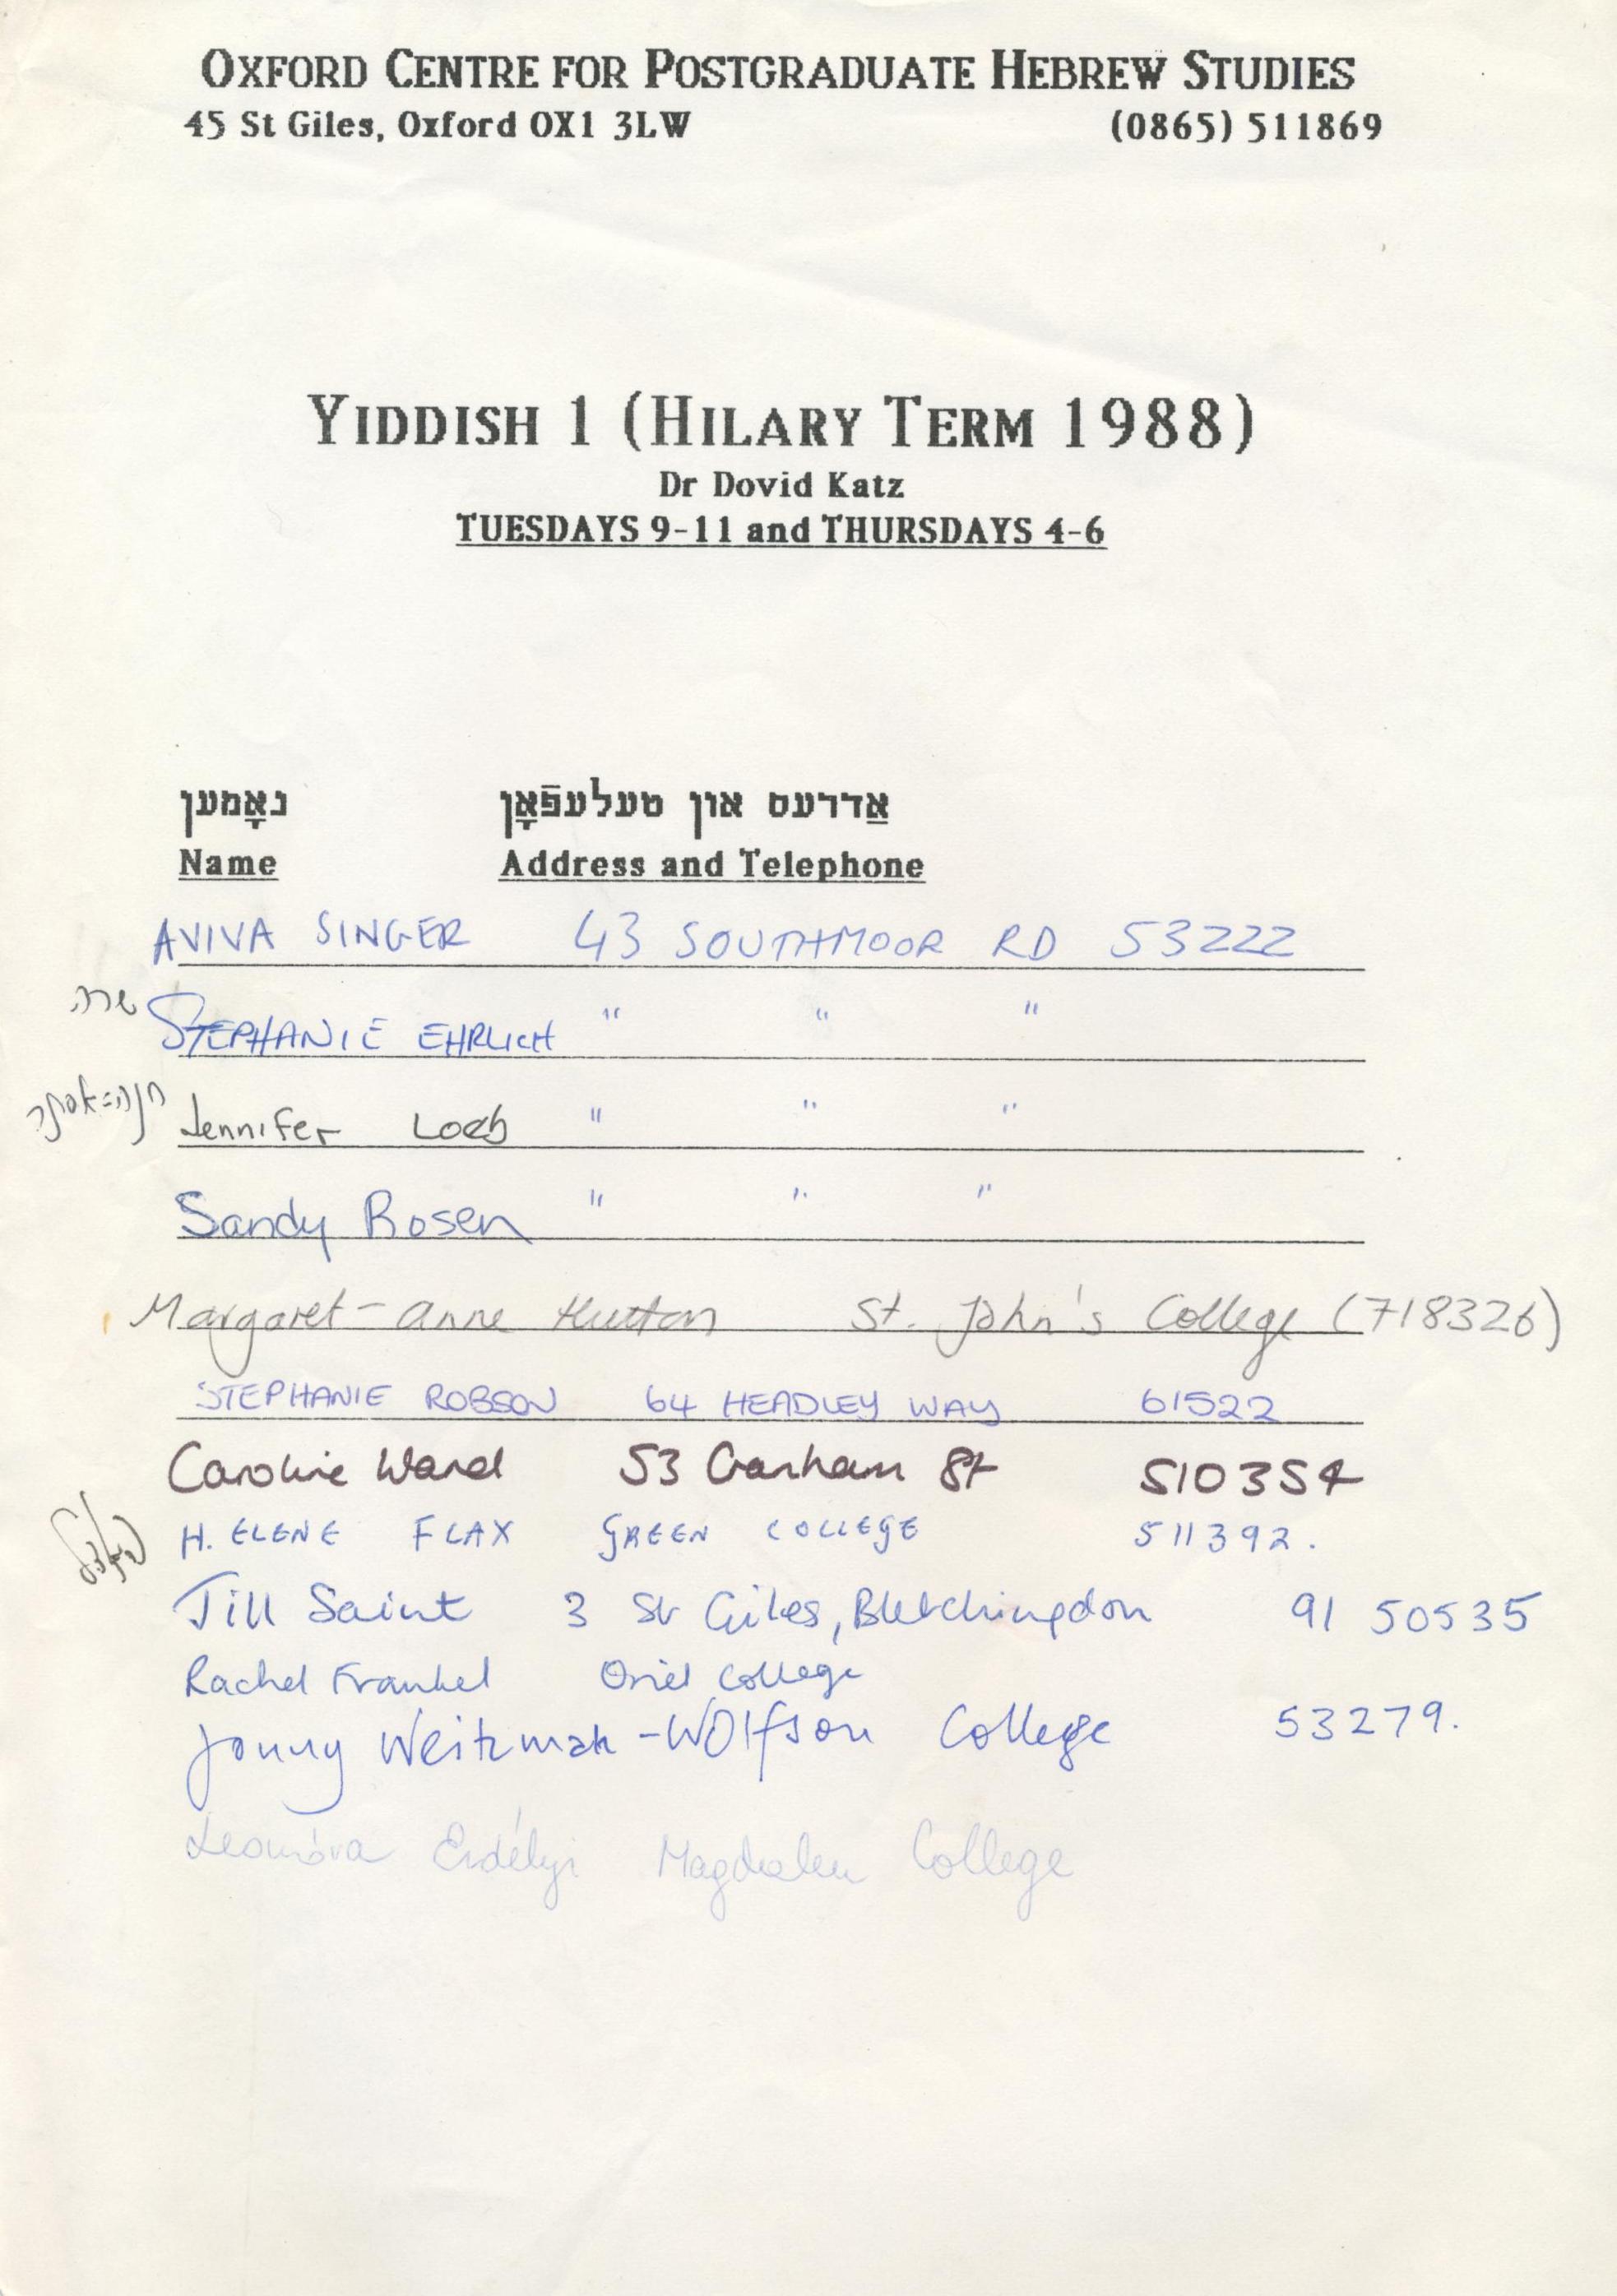 OXFORD CENTRE FOR POSTGRADUATE HEBREW STUDIES
45 St Giles, Oxford OX1 3LW (0865) 511869
YIDDISH 1 (HILARY TERM 1988)
Dr Dovid Katz
TUESDAYS 9-11 and THURSDAYS 4-6
נאָמען אַדרעס און טעלעפֿאָן
Name Address and Telephone
AVIVA SINGER 43 SOUTHMOOR RD 53222
שרה STEPHANIE EHRLICH " " "
חנה=אסתר Jennifer Loeb " " "
Sandy Rosen " " "
Margaret-Anne Hutton St. John's College (718326)
STEPHANIE ROBSON 64 HEADLEY WAY 61522
Caroline Ward 53 Cranham St 510354
H. ELENE FLAX GREEN COLLEGE 511392.
Jill Saint 3 St Giles, Bletchingdon 91 50535
Rachel Frankel Oriel College
Jonny Weitzman - Wolfson College 53279.
Leonóra Erdélyi Magdalen College